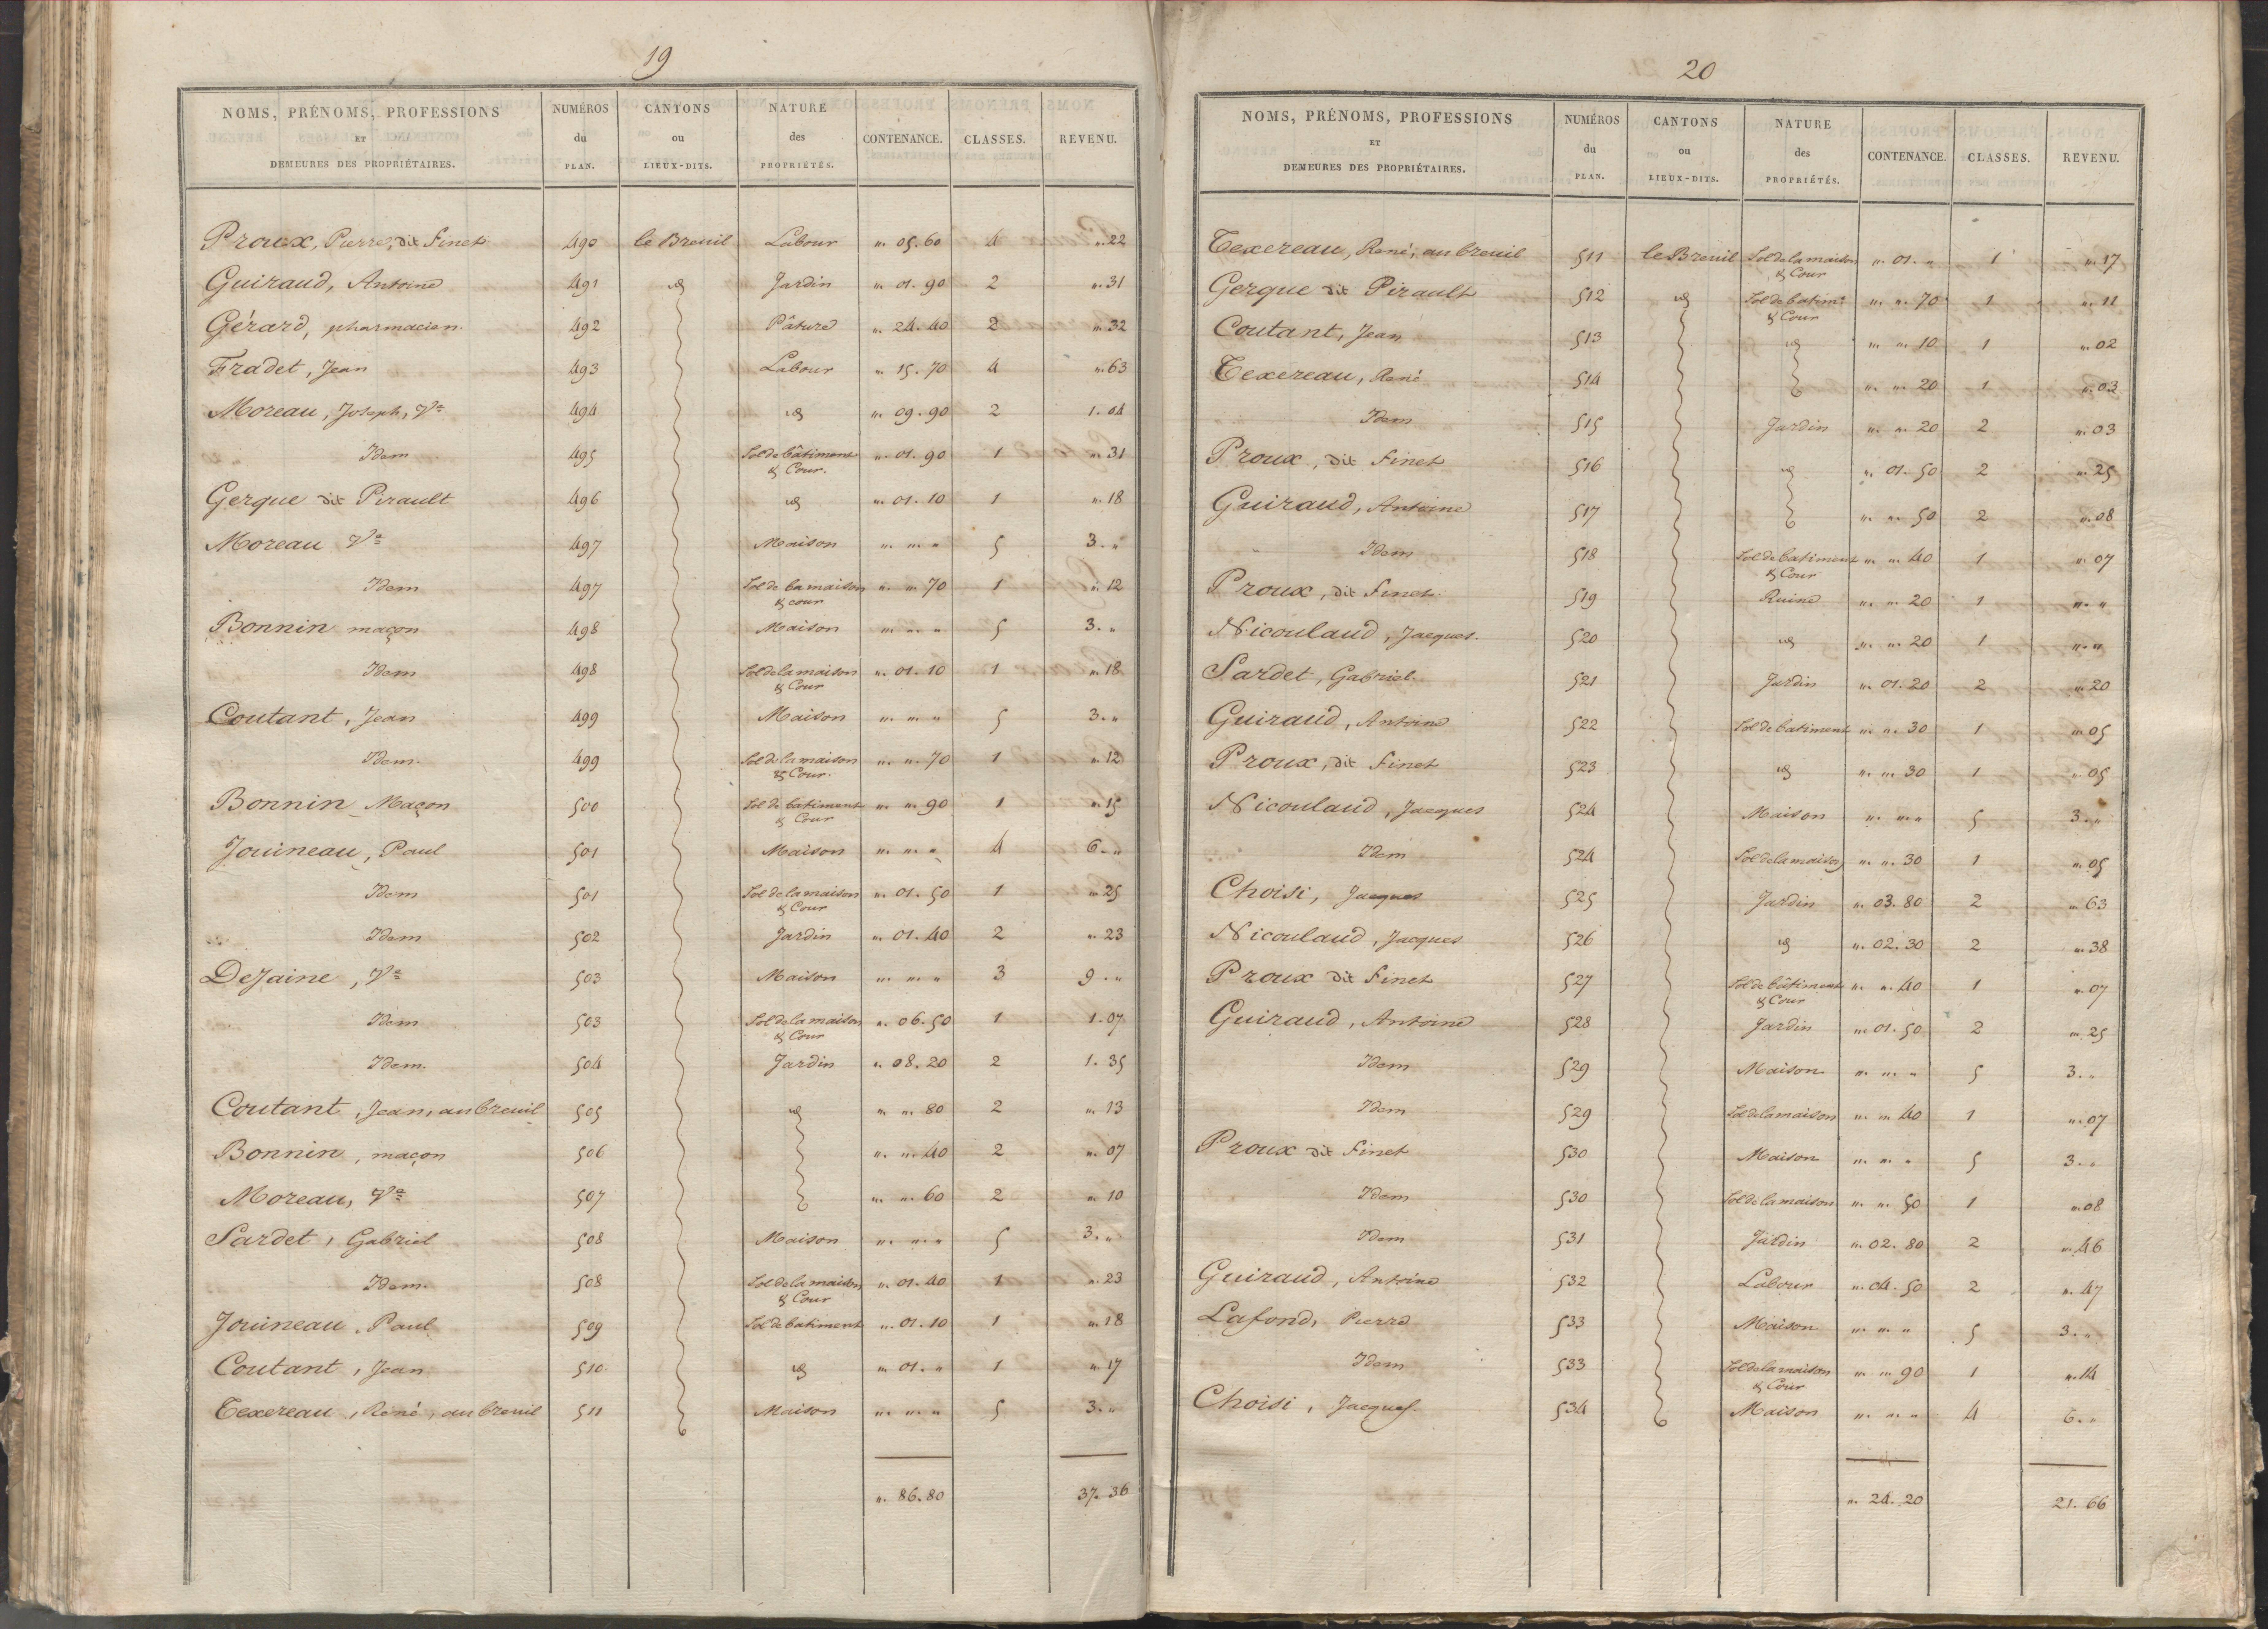 19
NOMS, PRÉNOMS, PROFESSIONS ET DEMEURES DES PROPRIÉTAIRES. NUMÉROS du PLAN. CANTONS ou LIEUX-DITS. NATURE des PROPRIÉTÉS. CONTENANCE. CLASSES. REVENU.
Proux, Pierre, dit Finet 490 le Breuil Labour „. 05. 60 4 „. 22
Guiraud, Antoine 491 id Jardin „. 01. 90 2 „. 31
Gérard, pharmacien. 492 Pâture „. 24. 40 2 „. 32
Fradet, Jean 493 Labour „. 15. 70 4 „. 63
Moreau, Joseph, Ve 494 id „. 09. 90 2 1. 04
Idem 495 Sol de bâtiment & Cour. „. 01. 90 1 „. 31
Gerque dit Pirault 496 id „. 01. 10 1 „. 18
Moreau Ve 497 Maison „. „. „ 5 3. „
Idem 497 Sol de la maison & cour „. „. 70 1 „. 12
Bonnin maçon 498 Maison „. „. „ 5 3. „
Idem 498 Sol de la maison & Cour „. 01. 10 1 „. 18
Coutant, Jean 499 Maison „. „. „ 5 3. „
Idem. 499 Sol de la maison & Cour. „. „. 70 1 „. 12
Bonnin Maçon 500 Sol de batiment & Cour „. „. 90 1 „. 15
Jouineau, Paul 501 Maison „. „. „ 4 6. „
Idem 501 Sol de la maison & Cour „. 01. 50 1 „. 25
Idem 502 Jardin „. 01. 40 2 „. 23
DeJaine, Ve 503 Maison „. „. „ 3 9. „
Idem 503 Sol de la maison & Cour „. 06. 50 1 1. 07
Idem. 504 Jardin „. 08. 20 2 1. 35
Coutant, Jean, au breuil 505 id „. „. 80 2 „. 13
Bonnin, maçon 506 „. „. 40 2 „. 07
Moreau, Ve 507 „. „. 60 2 „. 10
Sardet, Gabriel 508 Maison „. „. „ 5 3. „
Idem. 508 Sol de la maison & Cour „. 01. 40 1 „. 23
Jouineau, Paul 509 Sol de batiment „. 01. 10 1 „. 18
Coutant, Jean 510 id „. 01. „ 1 „. 17
Texereau, René, au breuil 511 Maison „. „. „ 5 3. „
„. 86. 80 37. 36
20
NOMS, PRÉNOMS, PROFESSIONS ET DEMEURES DES PROPRIÉTAIRES. NUMÉROS du PLAN. CANTONS ou LIEUX-DITS. NATURE des PROPRIÉTÉS. CONTENANCE. CLASSES. REVENU.
Texereau, René, au breuil 511 le Breuil Sol de la maison & Cour „. 01. „ 1 „. 17
Gerque dit Pirault 512 id Sol de batimt & Cour „. „. 70 1 „. 11
Coutant, Jean 513 id „. „. 10 1 „. 02
Texereau, René 514 „. „. 20 1 „. 03
Idem 515 Jardin „. „. 20 2 „. 03
Proux, dit Finet 516 id „. 01. 50 2 „. 25
Guiraud, Antoine 517 „. „. 50 2 „. 08
Idem 518 Sol de batiment & Cour „. „. 40 1 „. 07
Proux, dit Finet. 519 Ruine „. „. 20 1 „. „
Nicoulaud, Jacques. 520 id „. „. 20 1 „. „
Sardet, Gabriel. 521 Jardin „. 01. 20 2 „. 20
Guiraud, Antoine 522 Sol de batiment „. „. 30 1 „. 05
Proux, dit Finet 523 id „. „. 30 1 „. 05
Nicoulaud, Jacques 524 Maison „. „. „ 5 3. „
Idem 524 Sol de la maison „. „. 30 1 „. 05
Choisi, Jacques 525 Jardin „. 03. 80 2 „. 63
Nicoulaud, Jacques 526 id „. 02. 30 2 „. 38
Proux dit Finet 527 Sol de bâtiment & Cour „. „. 40 1 „. 07
Guiraud, Antoine 528 Jardin „. 01. 50 2 „. 25
Idem 529 Maison „. „. „ 5 3. „
Idem 529 Sol de la maison „. „. 40 1 „. 07
Proux dit Finet 530 Maison „. „. „ 5 3. „
Idem 530 Sol de la maison „. „. 50 1 „. 08
Idem 531 Jardin „. 02. 80 2 „. 46
Guiraud, Antoine 532 Labour „. 04. 50 2 „. 47
Lafond, Pierre 533 Maison „. „. „ 5 3. „
Idem 533 Sol de la maison & Cour „. „. 90 1 „. 14
Choisi, Jacques. 534 Maison „. „. „ 4 6. „
„. 24. 20 21. 66